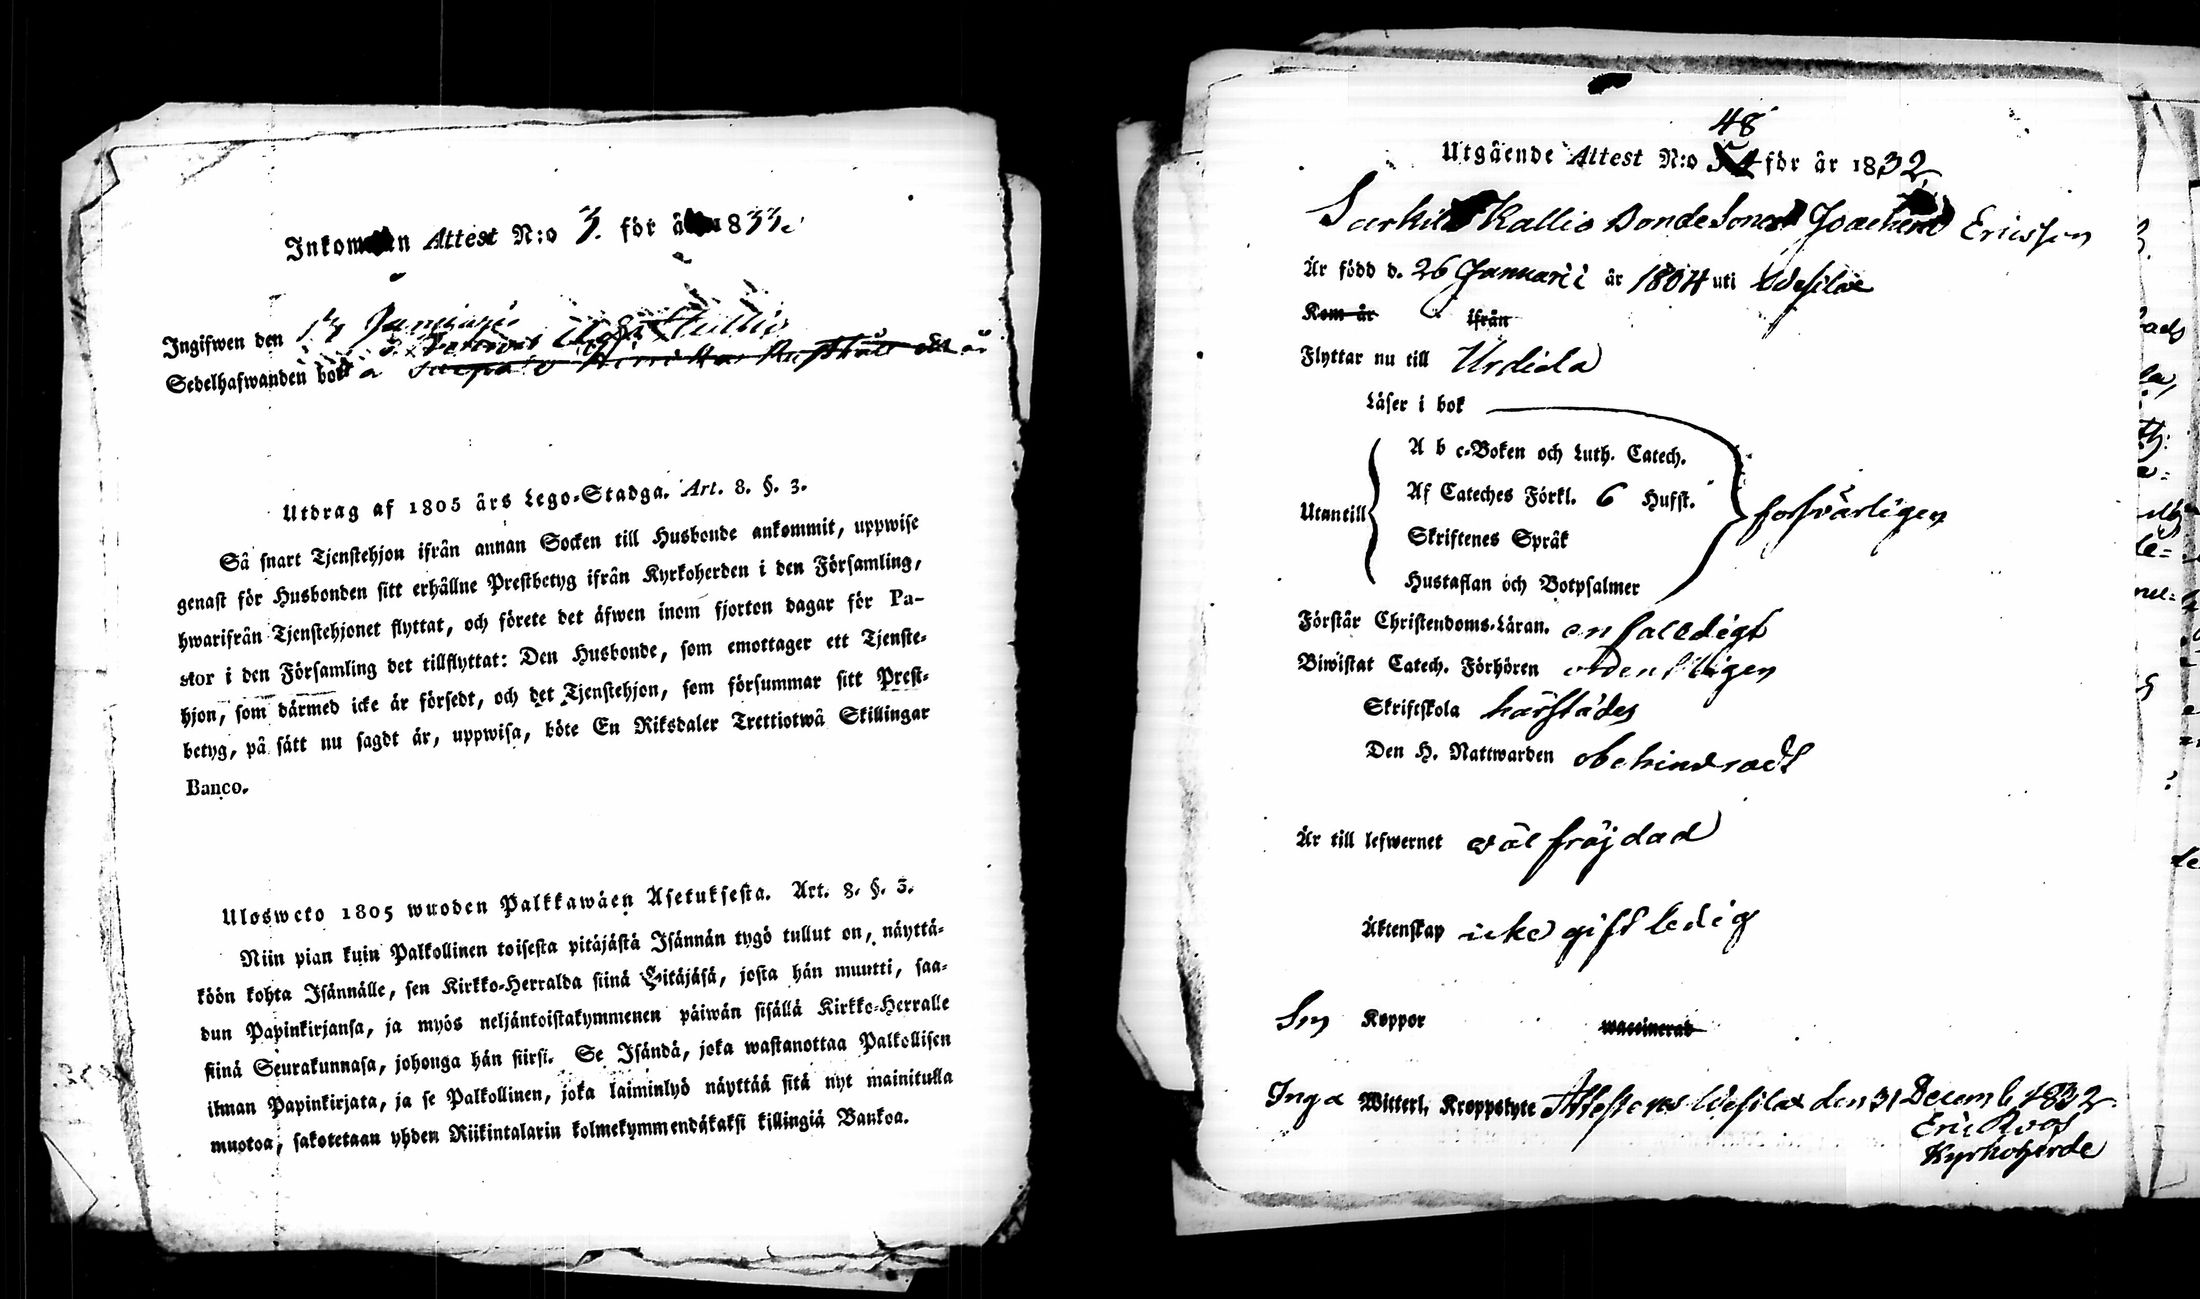 Inkommen Attest N:o 3. för år 1833.
Ingifwen den 14 Januarii
Sedelhafwanden bor
Utdrag af 1805 års Lego-Stadga. Art. 8. §. 3.
Så snart Tjenstehjon ifrån annan Socken till Husbonde ankommit, uppwise
genast för Husbonden sitt erhållne Prestbetyg ifrån Kyrkoherden i den Församling,
hwarifrån Tjenstehjonet flyttat, och förete det äfwen inom fjorton dagar för Pa-
stor i den Församling det tillflyttat: Den Husbonde, som emottager ett Tjenste-
hjon, som därmed icke är försedt, och det Tjenstehjon, som försummar sitt Prest-
betyg, på sätt nu sagdt är, uppwisa, böte En Riksdaler Trettiotwå Skillingar
Banco.
Ulosweto 1805 wuoden Palkkawäen Asetuksesta. Art. 8. §. 3.
Niin pian kuin Palkollinen toisesta pitäjästä Isännän tygö tullut on, näyttä-
köön kohta Isännälle, sen Kirkko-Herralda siinä Pitäjäsä, josta hän muutti, saa-
dun Papinkirjansa, ja myös neljäntoistakymmenen päiwän sisällä Kirkko-Herralle
siinä Seurakunnasa, johonga hän siirsi. Se Isändä, joka wastanottaa Palkollisen
ilman Papinkirjata, ja se Palkollinen, joka laiminlyö näyttää sitä nyt mainitulla
muotoa, sakotetaan yhden Riikintalarin kolmekymmendäkaksi killingiä Bankoa.
48
Utgående Attest N:o för år 1832
Kallio Bondesonen Joachim Ericsson
Är född d. 26 Januarii år 1804 uti Wesilax
Kom år ifrån
Flyttar nu till Urdiala
Läser i bok
Utantill
A b c-Boken och Luth. Catech.
Af Cateches Förkl. 6 Hufst.
Skriftenes Språk
Hustaflan och Botpsalmer
försvarligen
Förstår Christendoms-Läran. enfalldigt
Biwistat Catech. Förhören ordentligen
Skriftskola härstädes
Den H. Nattwarden obehindradt
Är till lefwernet väl fräjdad
Äktenskap icke gift ledig
Koppor waccinerad
Inga Witterl. Kroppslyte Attesteras Wesilax den 31 Decemb 1832.
Eric Roos
Kyrkoherde